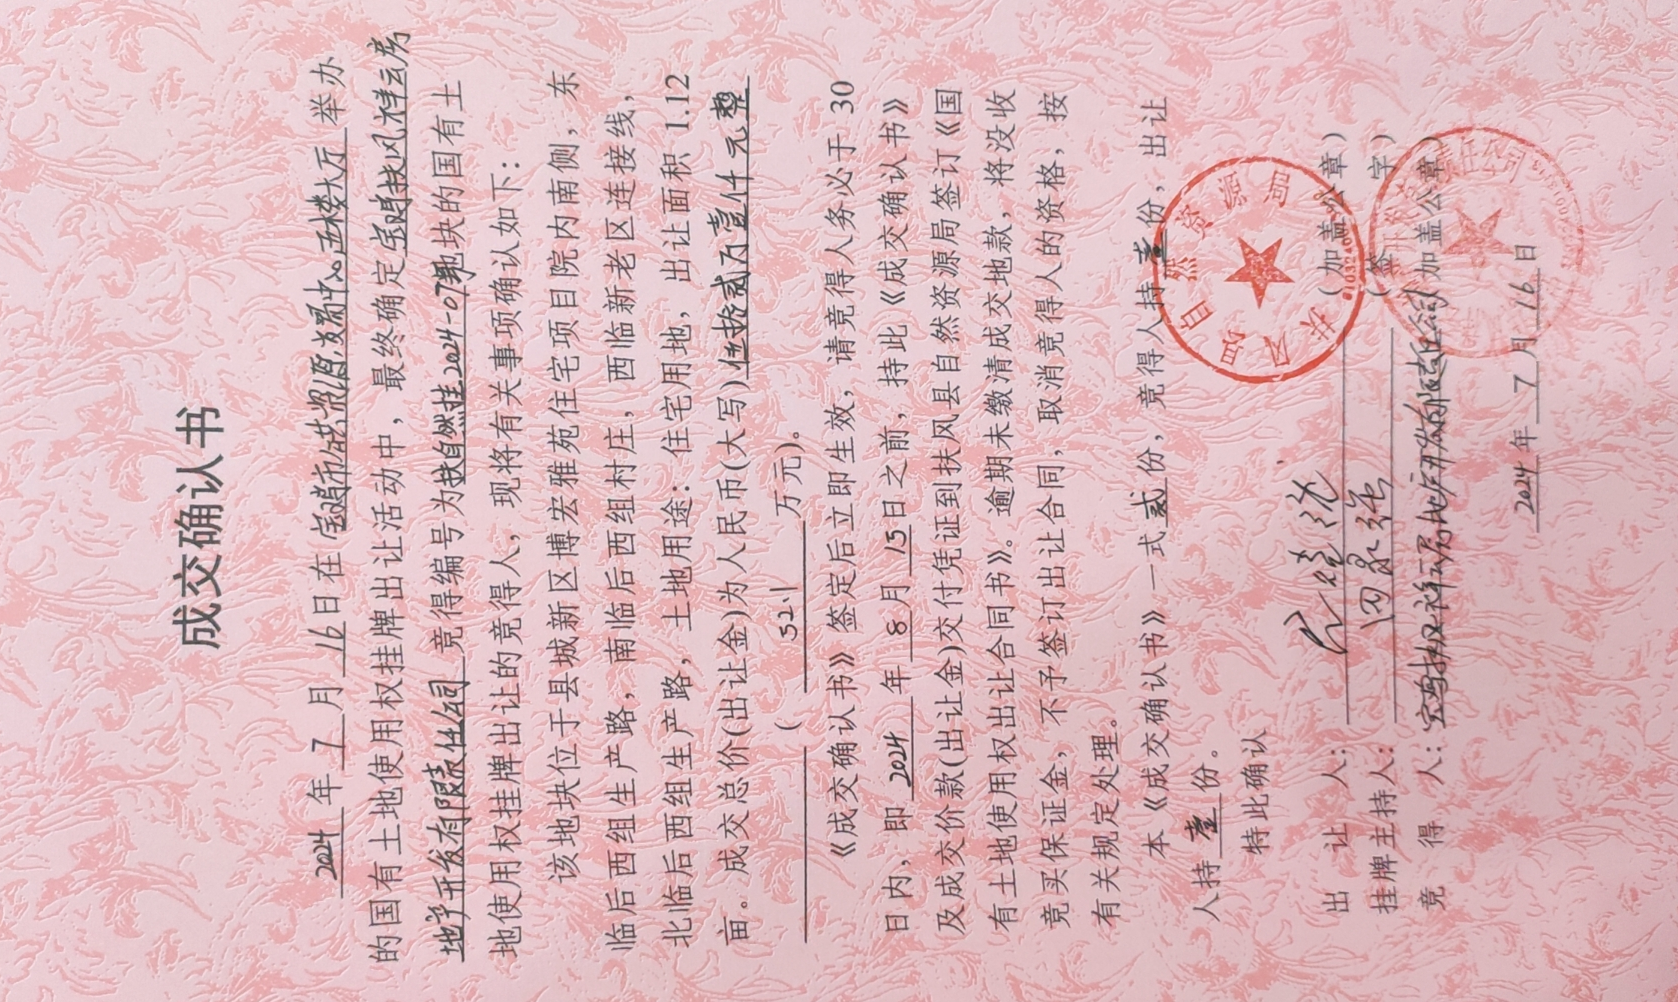 成交确认书
2024 年 7 月 16 日在 宝鸡市公共资源交易中心五楼大厅 举办
的国有土地使用权挂牌出让活动中，最终确定宝鸡扶风祥云房
地产开发有限责任公司 竞得编号为扶自然挂2024-07号地块的国有土
地使用权挂牌出让的竞得人，现将有关事项确认如下：
该地块位于县城新区博宏雅苑住宅项目院内南侧，东
临后西组生产路，南临后西组村庄，西临新老区连接线，
北临后西组生产路，土地用途：住宅用地，出让面积 1.12
亩。成交总价(出让金)为人民币(大写)伍拾贰万壹仟元整
( 52.1 万元)。
《成交确认书》签定后立即生效，请竞得人务必于 30
日内，即 2024 年 8 月 15 日之前，持此《成交确认书》
及成交价款(出让金)交付凭证到扶风县自然资源局签订《国
有土地使用权出让合同书》。逾期未缴清成交地款，将没收
竞买保证金，不予签订出让合同，取消竞得人的资格，按
有关规定处理。
本《成交确认书》一式贰份，竞得人持壹份，出让
人持壹份。
特此确认
出 让 人： （加盖公章）
扶风县自然资源局
挂牌主持人： （签 字）
竞 得 人：宝鸡扶风祥云房地产开发有限责任公司（加盖公章）
2024 年 7 月 16 日